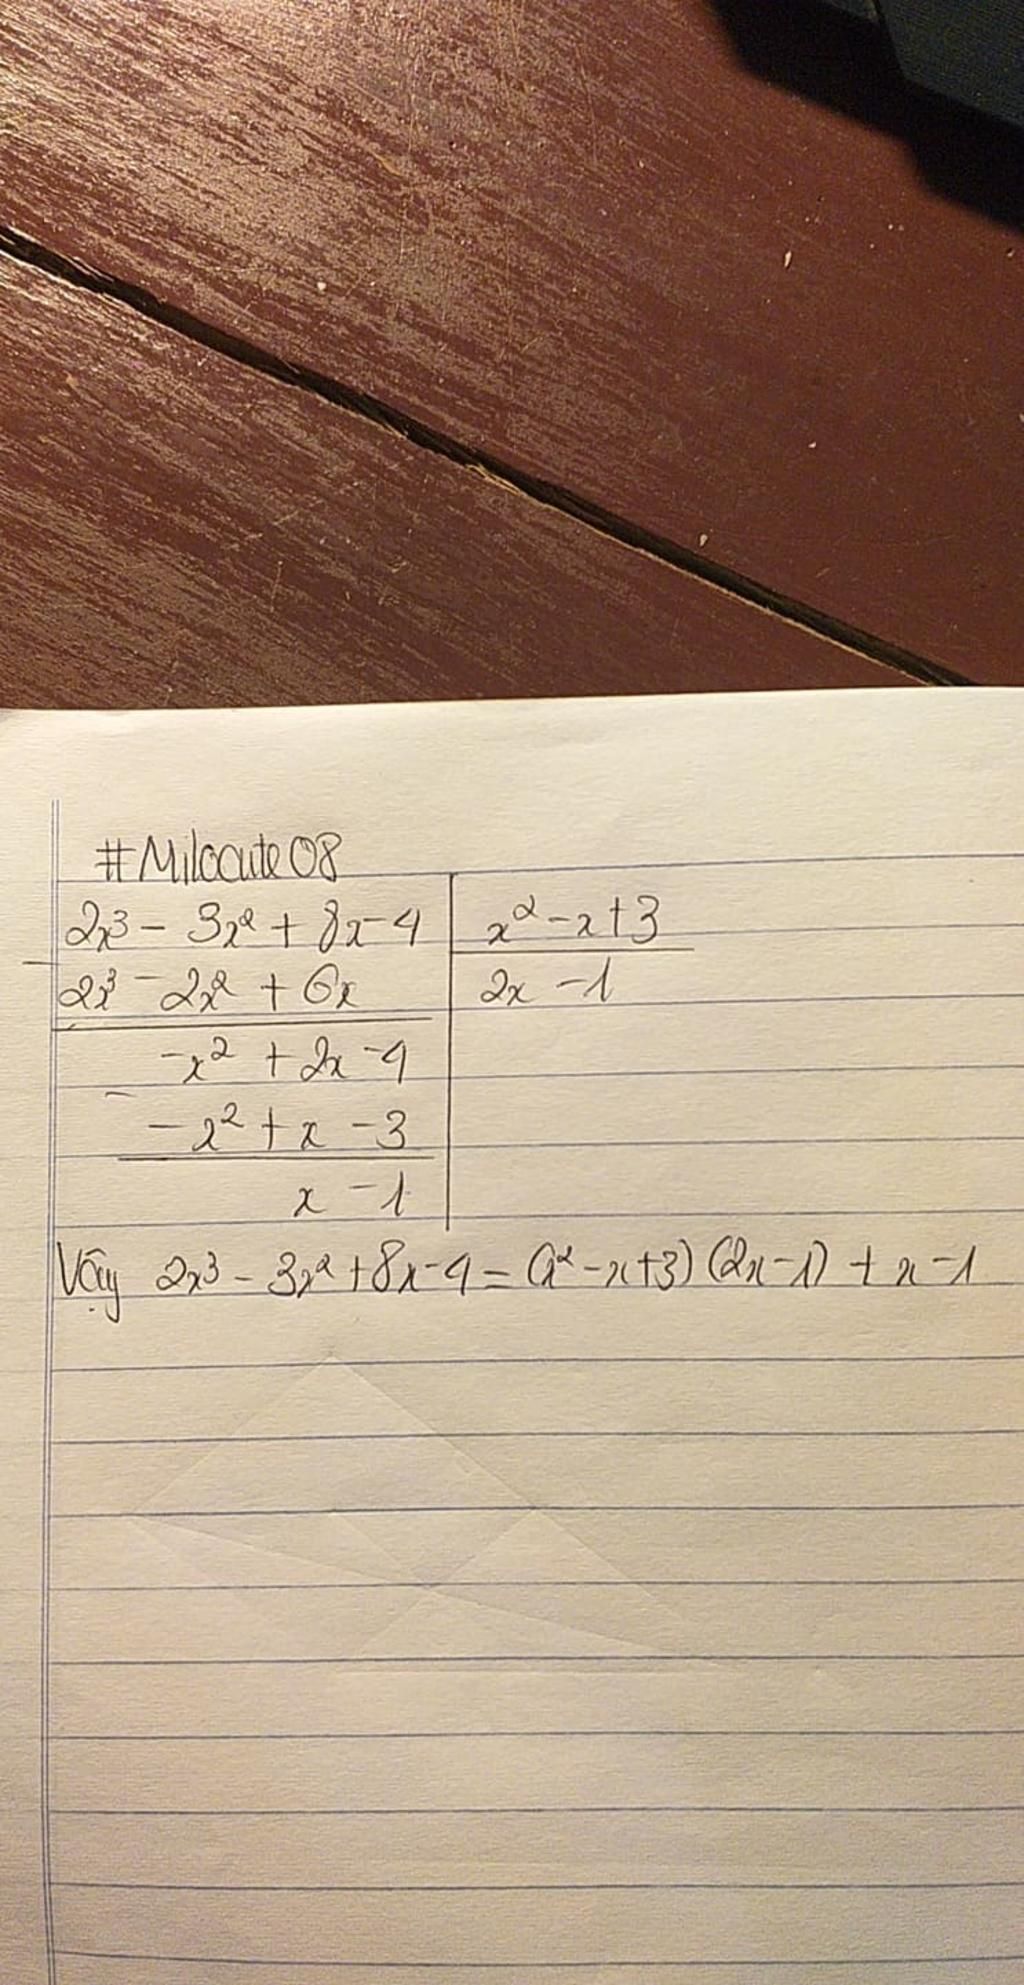 #Milocute08
2x³ - 3x² + 8x - 4 | x² - x + 3
- 2x³ - 2x² + 6x | 2x - 1
-x² + 2x - 4
- -x² + x - 3
x - 1
Vậy 2x³ - 3x² + 8x - 4 = (x² - x + 3) (2x - 1) + x - 1